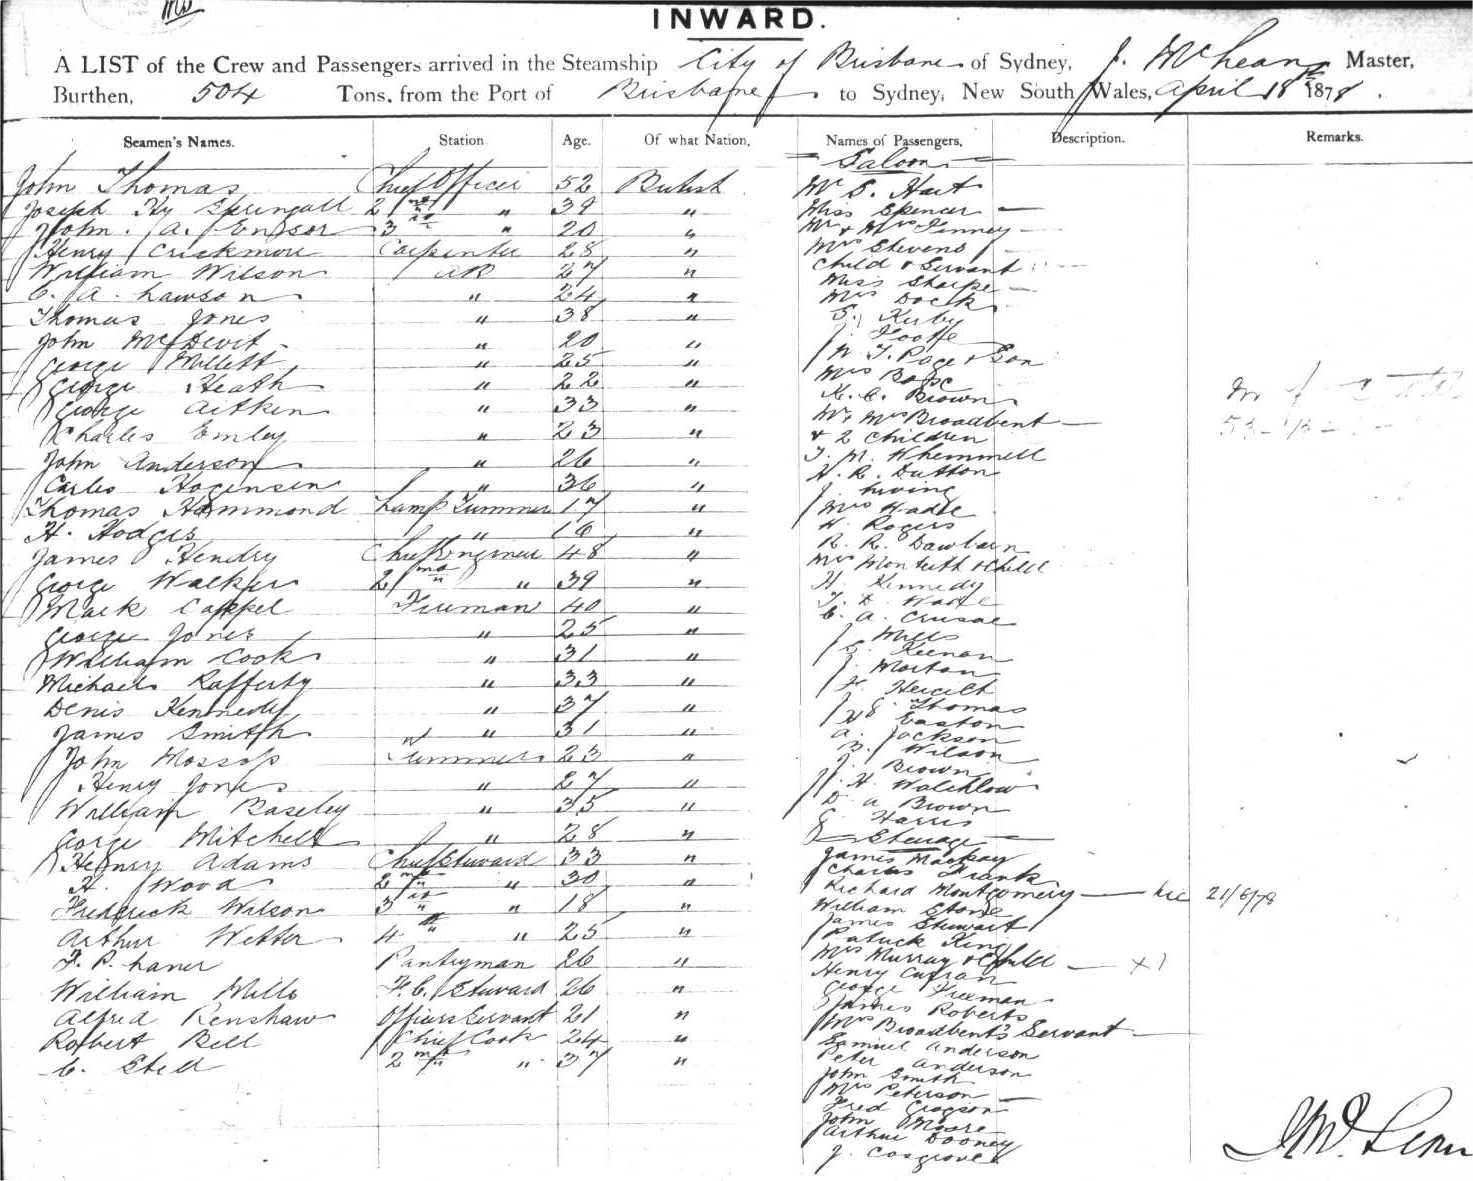 INWARD.
A LIST of the Crew and Passengers arrived in the Steamship City of Brisbane of Sydney, J. McLean Master,
Burthen, 504 Tons, from the Port of Brisbane to Sydney, New South Wales, April 18th 1878.
Seamen's Names. Station Age. Of what Nation, Names of Passengers, Description. Remarks.
Saloon
John Thomas Chief Officer 52 British
Joseph Hy Springall 2nd " 39 "
John A. Ensor 3rd " 20 "
Henry Crickmore Carpenter 28 "
William Wilson AB 27 "
C. A. Lawson " 24 "
Thomas Jones " 38 "
John McDevit " 20 "
George Millett " 25 "
George Heath " 22 "
George Aitken " 33 "
Charles Emley " 23 "
John Anderson " 26 "
Carles Hogensen " 36 "
Thomas Hammond Lamp Trimmer 17 "
H. Hodges " 16 "
James Hendry Chief Engineer 48 "
George Walker 2nd " 39 "
Mark Cappel Fireman 40 "
George Jones " 25 "
William Cook " 31 "
Michael Rafferty " 33 "
Denis Kennedy " 37 "
James Smith " 31 "
John Mossop Trimmers 23 "
Henry Jones " 27 "
William Baseley " 35 "
George Mitchell " 28 "
Henry Adams Chief Steward 33 "
H. Wood 2nd " 30 "
Frederick Wilson 3rd " 18 "
Arthur Wetter 4th " 25 "
F. P. Laner Pantryman 26 "
William Mills F.C. Steward 26 "
Alfred Renshaw Officers Servant 21 "
Robert Bell Chief Cook 24 "
C. Stell 2nd " 37 "
Mr S. Hart
Miss Spencer
Mr & Mrs Finney
Mrs Stevens
Child & Servant
Miss Sharpe
Mrs Dock
S. Kirby
J. Foote
W. T. Page & Son
Mrs Bape
K. C. Brown
Mr Mrs Broadbent
& 2 Children
T. M. Whemmell
H. R. Dutton
J. Living
Mrs Wade
W. Rogers
R. R. Dawbarn
Mrs Monteith & Child
H. Kennedy
T. D. Wade
C. A. Crusoe
J. Mills
Keenan
J. Morton
J. E. Thomas
W. Easton
A. Jackson
B. Wilson
J. Brown
J. H. Walchlow
D A Brown
G. Harris
Steerage
James Mackay
Charles Frank
Richard Montgomery 21/6/78
William Stone
James Stewart
Patrick King
Mrs Murray & Child x 1
Henry Curran
George Freeman
James Roberts
Mrs Broadbent's Servant
Samuel Anderson
Peter Anderson
John Smith
Mrs Peterson
Fred Gregson
John Moore
Arthur Dooney
J. Cosgrove
J McLean